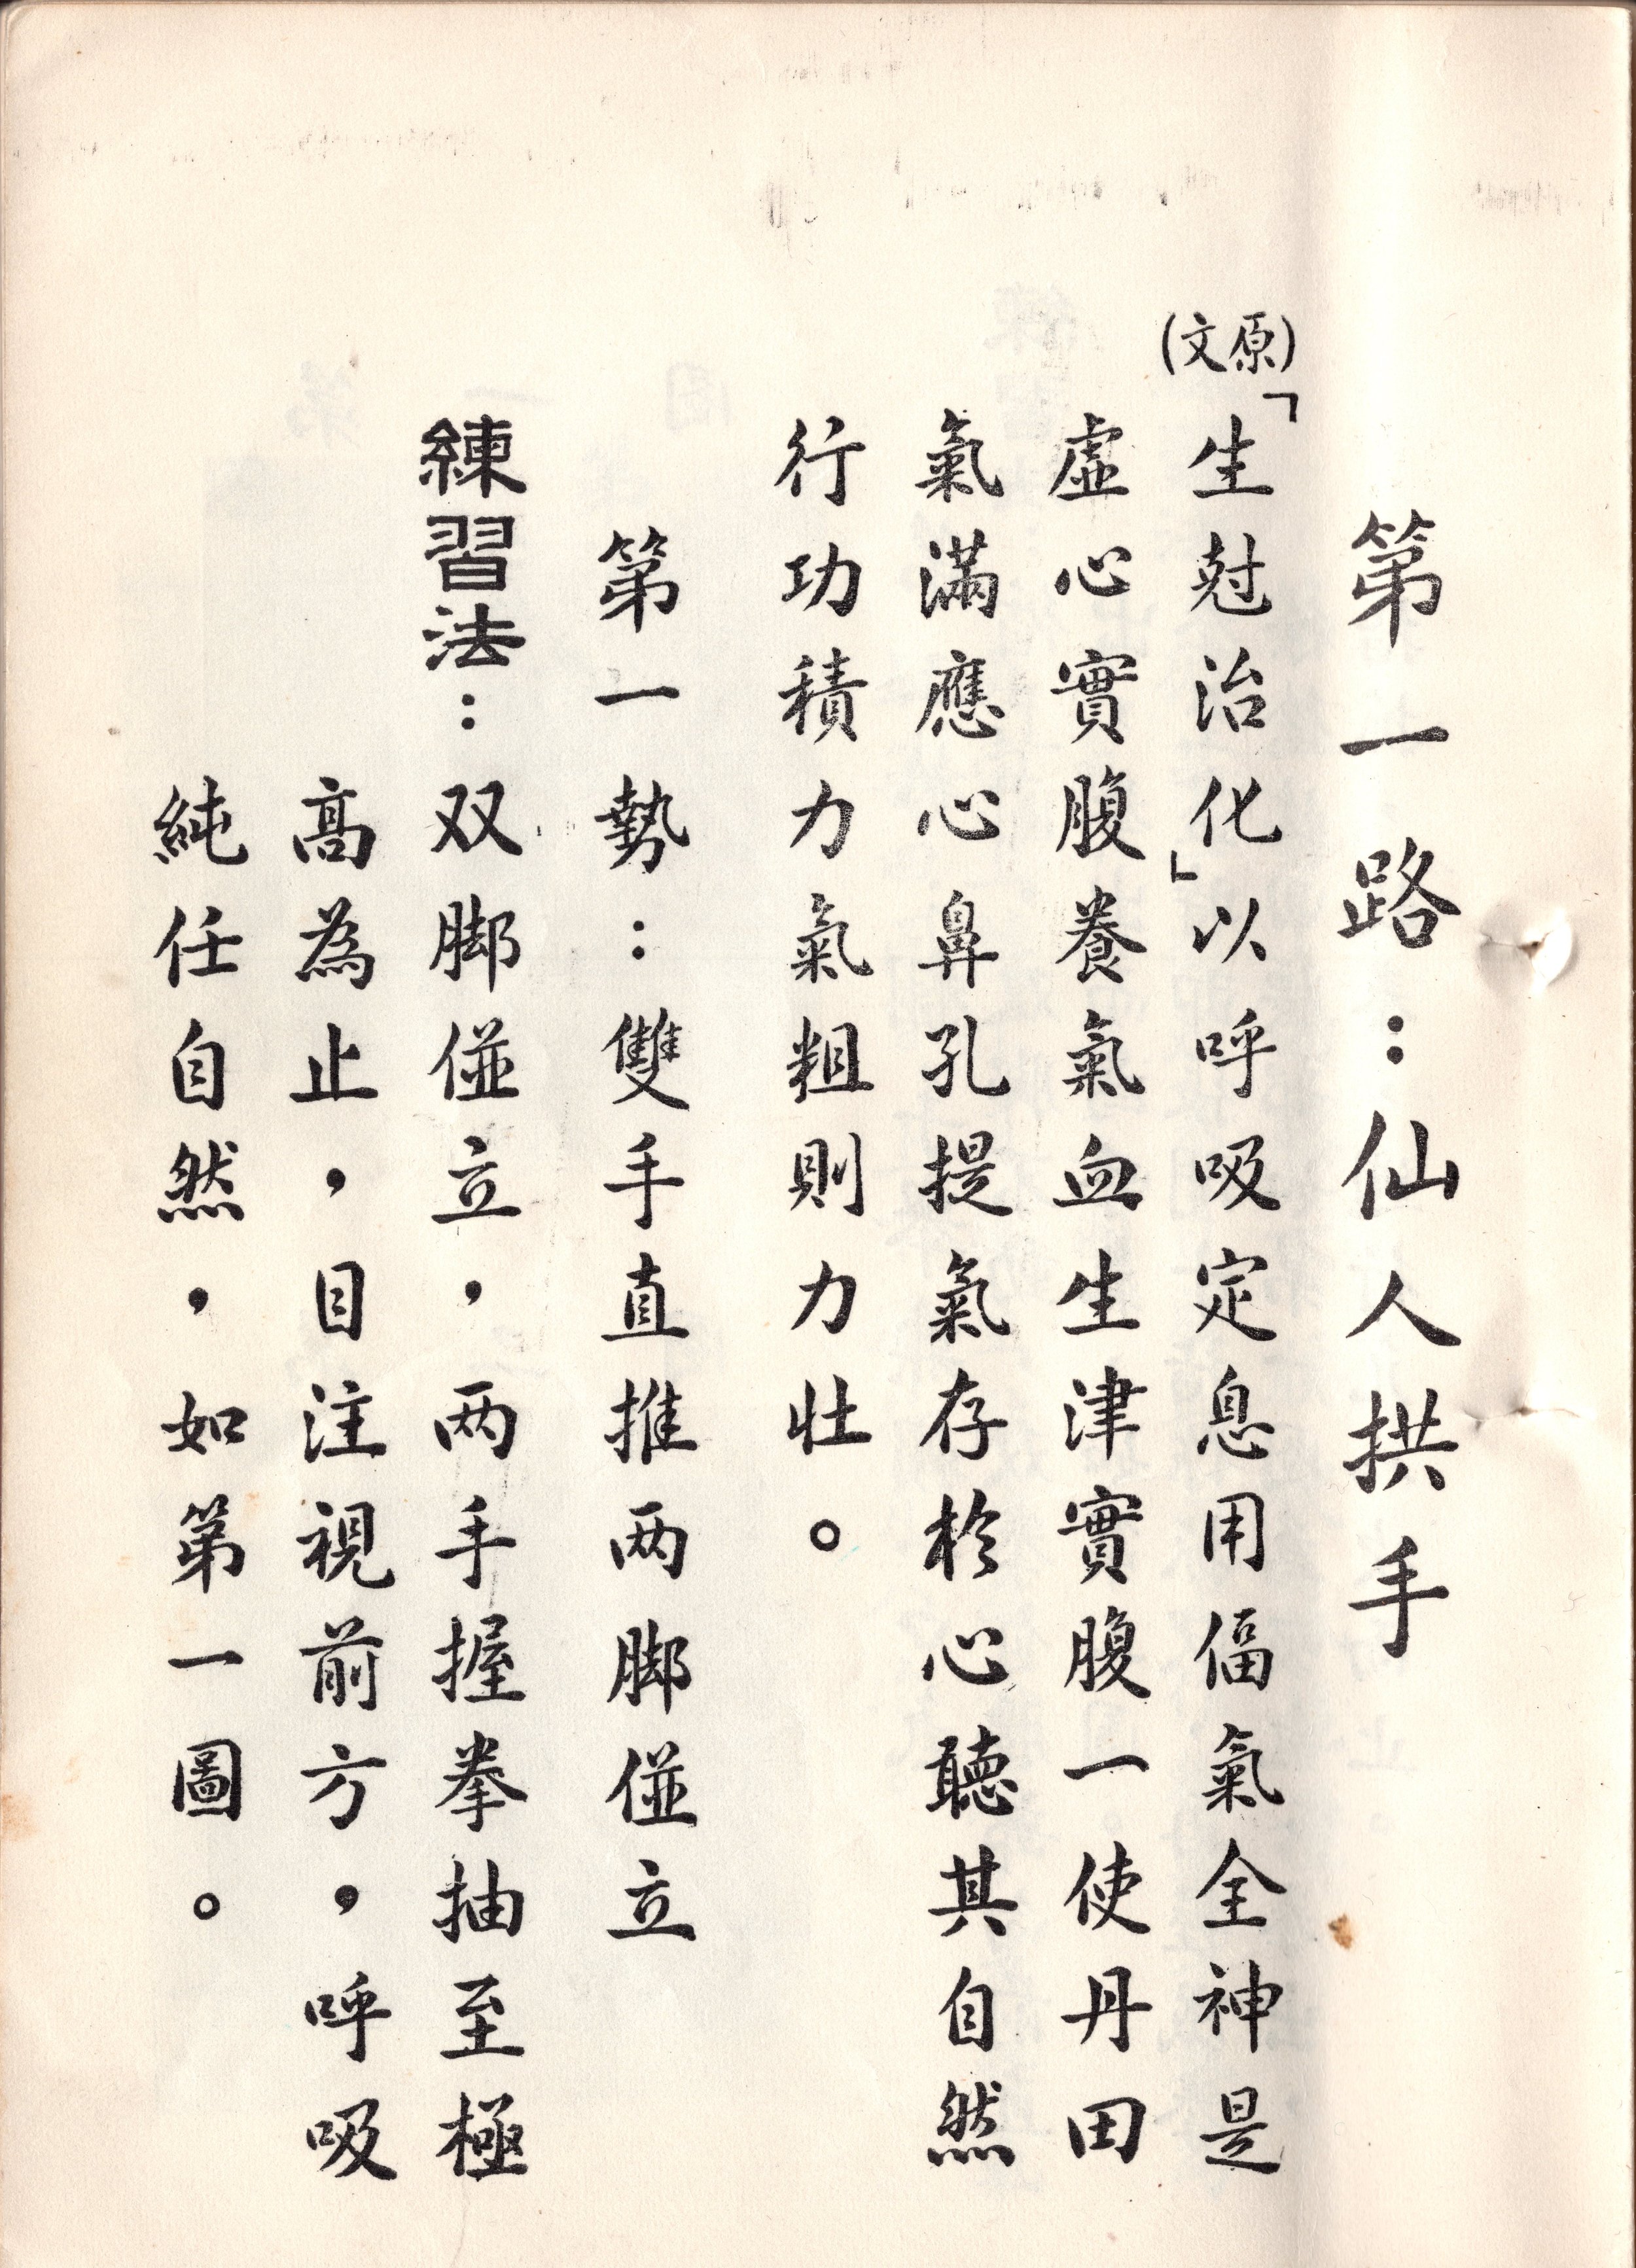 第一路：仙人拱手
(原文)
「生尅治化」以呼吸定息用偪氣全神是
虛心實腹養氣血生津實腹一使丹田
氣滿應心鼻孔提氣存於心聽其自然
行功積力氣粗則力壯。
第一勢：雙手直推两脚碰立
練習法：双脚碰立，两手握拳抽至極
高為止，目注視前方，呼吸
純任自然，如第一圖。